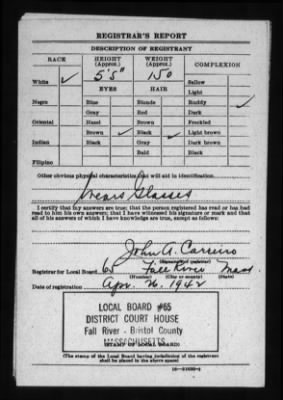 REGISTRAR'S REPORT
DESCRIPTION OF REGISTRANT
RACE HEIGHT (Approx.) WEIGHT (Approx.) COMPLEXION
5'5" 150
White ✓ Sallow
EYES HAIR Light
Negro Blue Blonde Ruddy ✓
Gray Red Dark
Oriental Hazel Brown Freckled
Brown ✓ Black ✓ Light brown
Indian Black Gray Dark brown
Bald Black
Filipino
Other obvious physical characteristics that will aid in identification
Wears Glasses
I certify that my answers are true; that the person registered has read or has had
read to him his own answers; that I have witnessed his signature or mark and that
all of his answers of which I have knowledge are true, except as follows:
John A.
Registrar for Local Board 65 Fall River Mass.
(Number) (City or county) (State)
Date of registration Apr. 26, 1942
LOCAL BOARD #65
DISTRICT COURT HOUSE
Fall River - Bristol County
MASSACHUSETTS
(STAMP OF LOCAL BOARD)
(The stamp of the Local Board having jurisdiction of the registrant
shall be placed in the above space.)